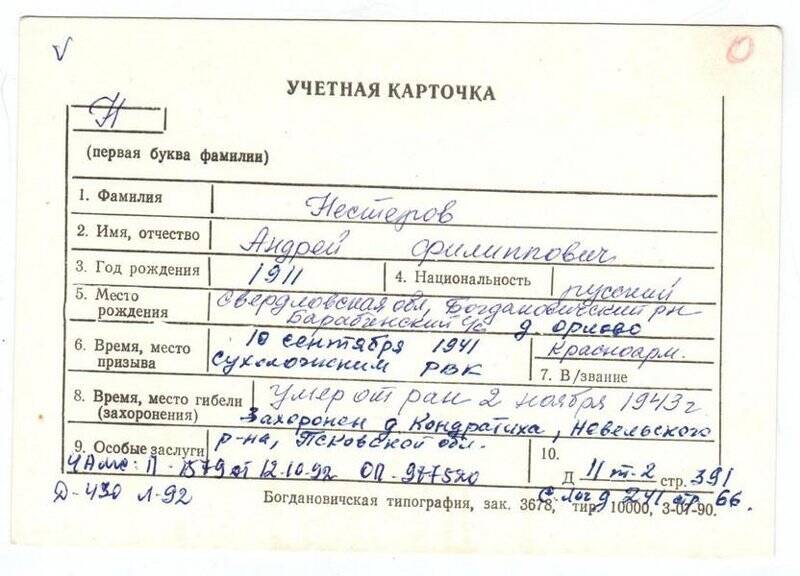 V
О
УЧЕТНАЯ КАРТОЧКА
Н
(первая буква фамилии)
1. Фамилия Нестеров
2. Имя, отчество Андрей Филиппович
3. Год рождения 1911 4. Национальность русский
5. Место рождения Свердловская обл, Богдановичский рн
Барабинский с/с д. Орлово
6. Время, место призыва 10 сентября 1941
Сухоложским РВК
Красноарм.
7. В/звание
8. Время, место гибели (захоронения) Умер от ран 2 ноября 1943г.
Захоронен д Кондратиха, Невельского
9. Особые заслуги р-на, Псковской обл.
10.
ЦАМО: П - 1579 от 12.10.92 ОП - 977520
Д 11 т-2 стр. 391
Д-430 Л-92
д 241 стр 66.
Богдановичская типография, зак. 3678, тир. 10000, 3-07-90.